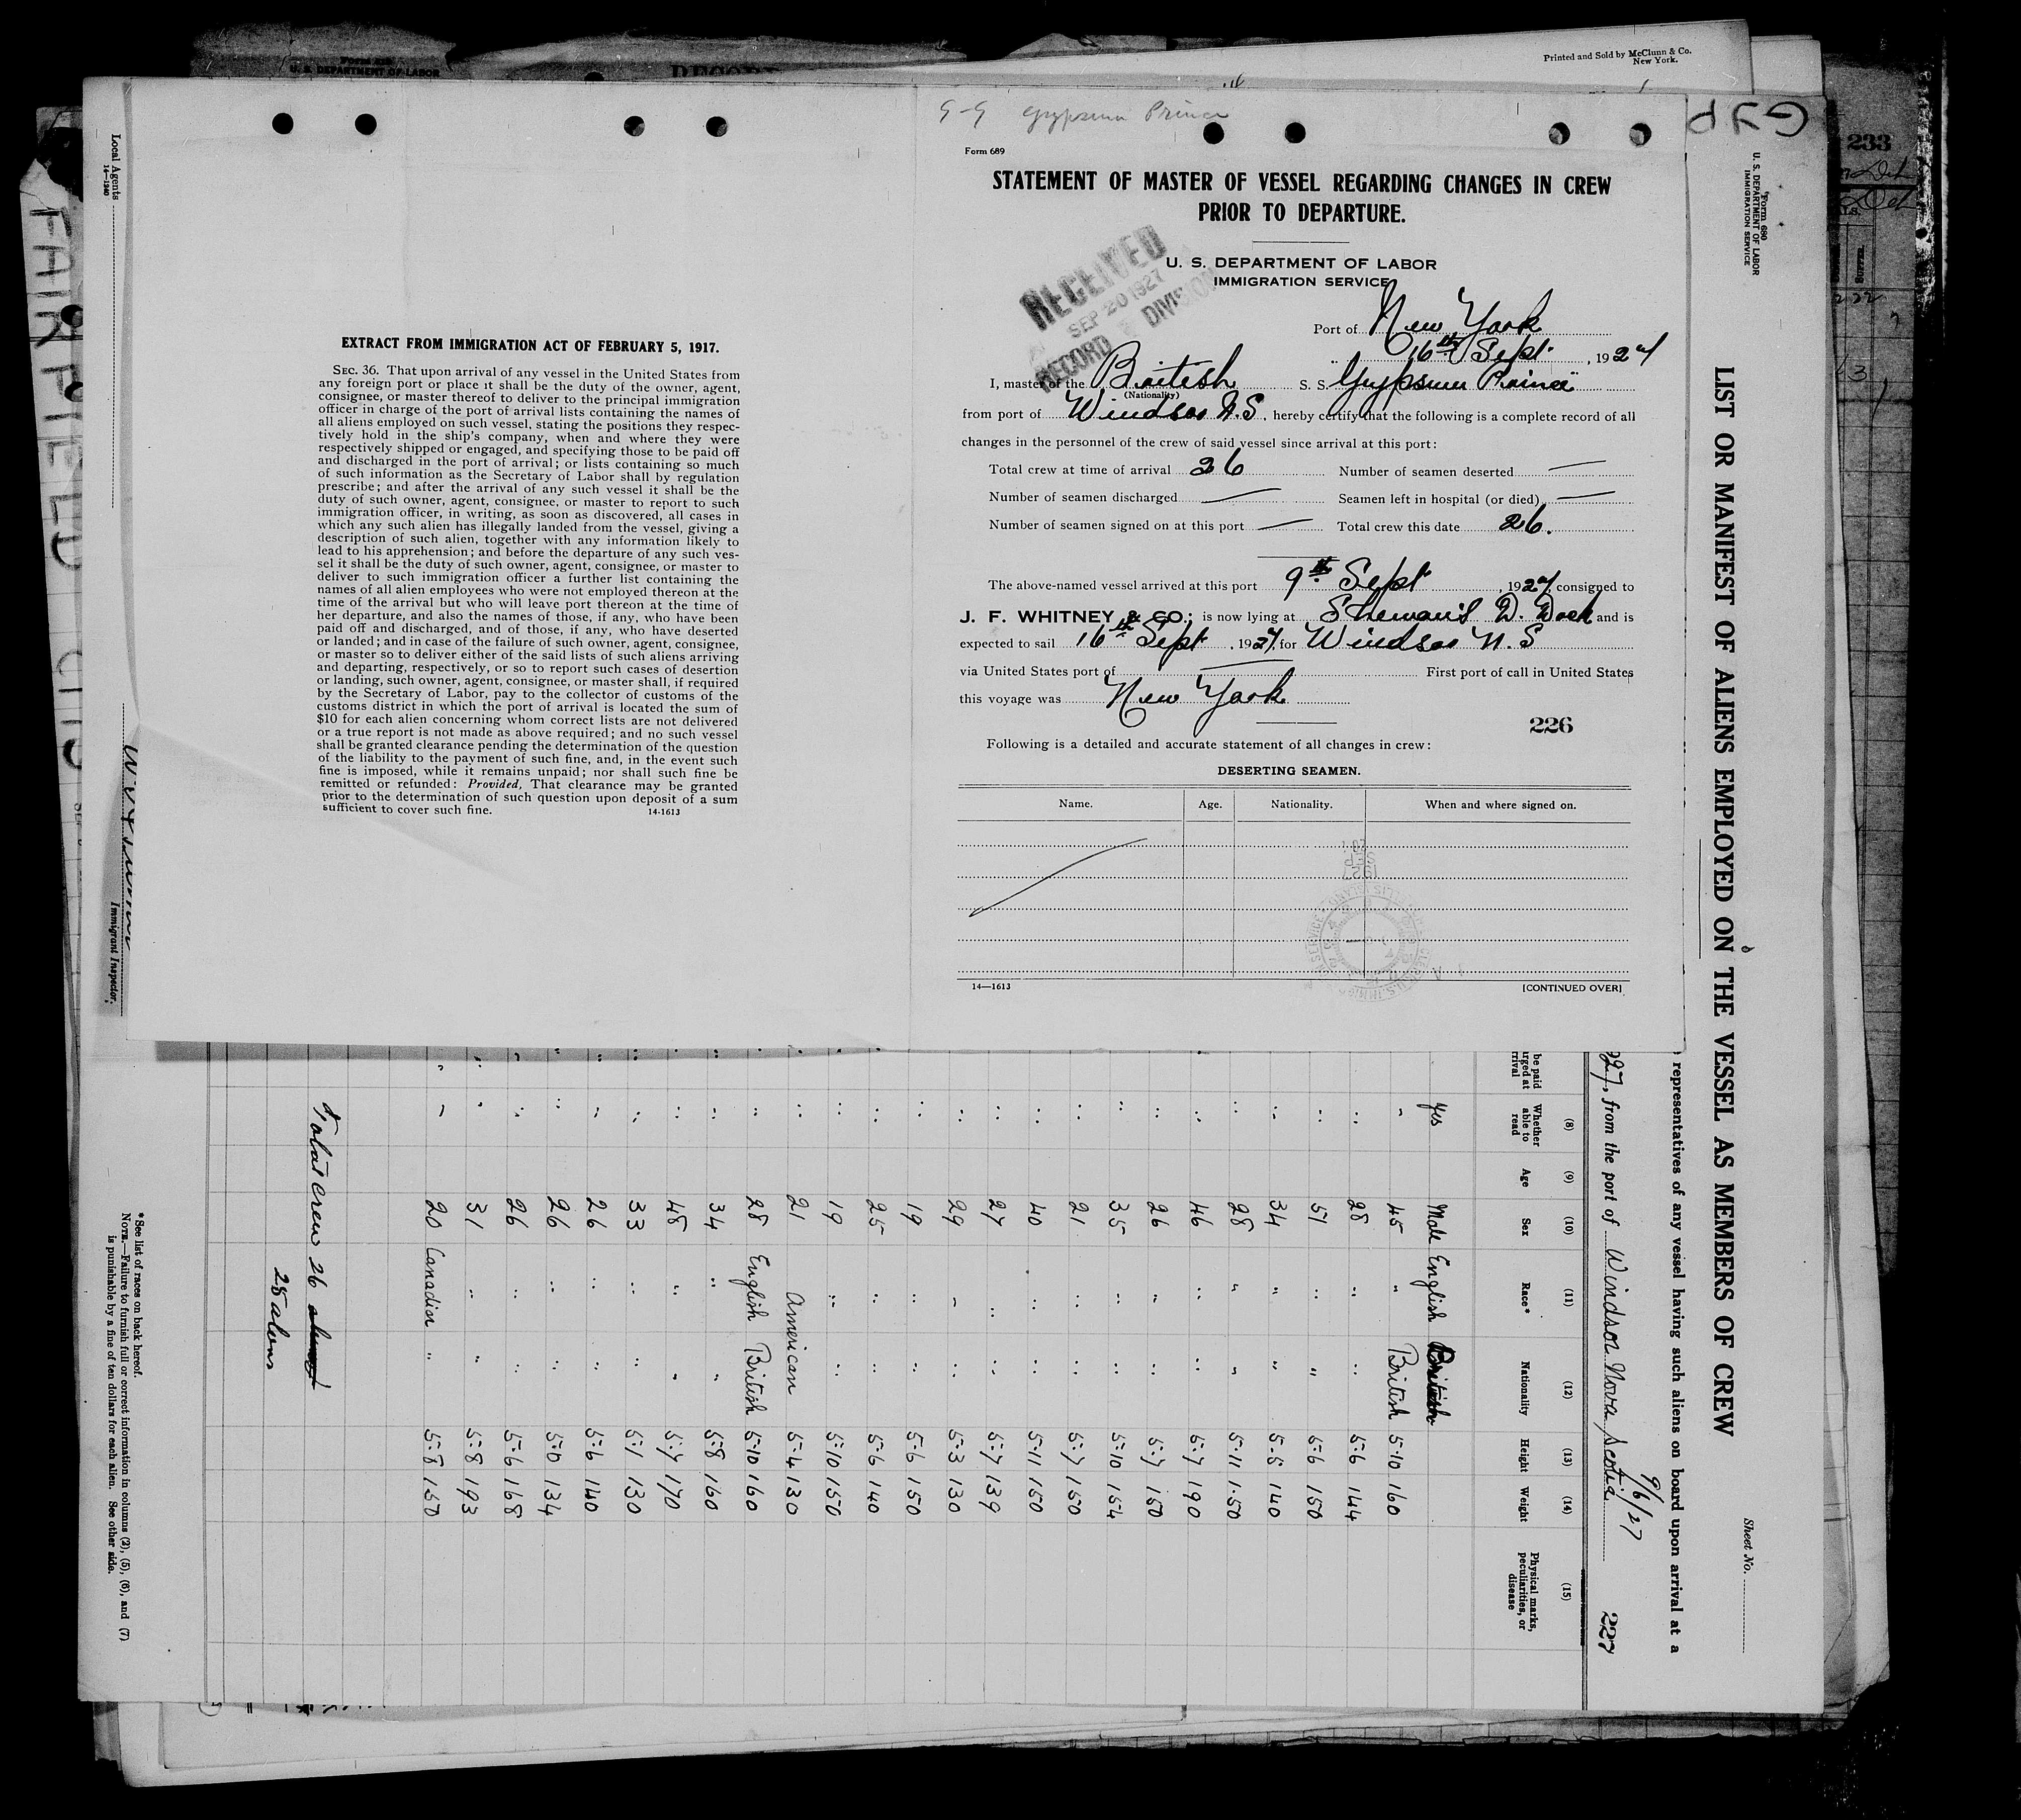 Printed and Sold by McClunn & Co.
New York.
Form 689
U. S. DEPARTMENT OF LABOR
9-9 Gypsum Prince
Form 689
STATEMENT OF MASTER OF VESSEL REGARDING CHANGES IN CREW
PRIOR TO DEPARTURE.
U. S. DEPARTMENT OF LABOR
IMMIGRATION SERVICE
RECEIVED
SEP 20 1927
RECORD DIVISION
Port of New York
" 16th Sept. , 1927
I, master of the British S. S. "Gypsum Prince"
(Nationality)
from port of Windsor N.S., hereby certify that the following is a complete record of all
changes in the personnel of the crew of said vessel since arrival at this port:
Total crew at time of arrival 26 Number of seamen deserted —
Number of seamen discharged — Seamen left in hospital (or died) —
Number of seamen signed on at this port — Total crew this date 26.
The above-named vessel arrived at this port 9th Sept , 1927, consigned to
J. F. WHITNEY & CO.; is now lying at D. Dock and is
expected to sail 16th Sept , 1927, for Windsor N. S
via United States port of — First port of call in United States
this voyage was New York
226
Following is a detailed and accurate statement of all changes in crew:
DESERTING SEAMEN.
Name. Age. Nationality. When and where signed on.
14—1613 [CONTINUED OVER]
EXTRACT FROM IMMIGRATION ACT OF FEBRUARY 5, 1917.
SEC. 36. That upon arrival of any vessel in the United States from
any foreign port or place it shall be the duty of the owner, agent,
consignee, or master thereof to deliver to the principal immigration
officer in charge of the port of arrival lists containing the names of
all aliens employed on such vessel, stating the positions they respec-
tively hold in the ship's company, when and where they were
respectively shipped or engaged, and specifying those to be paid off
and discharged in the port of arrival; or lists containing so much
of such information as the Secretary of Labor shall by regulation
prescribe; and after the arrival of any such vessel it shall be the
duty of such owner, agent, consignee, or master to report to such
immigration officer, in writing, as soon as discovered, all cases in
which any such alien has illegally landed from the vessel, giving a
description of such alien, together with any information likely to
lead to his apprehension; and before the departure of any such ves-
sel it shall be the duty of such owner, agent, consignee, or master to
deliver to such immigration officer a further list containing the
names of all alien employees who were not employed thereon at the
time of the arrival but who will leave port thereon at the time of
her departure, and also the names of those, if any, who have been
paid off and discharged, and of those, if any, who have deserted
or landed; and in case of the failure of such owner, agent, consignee,
or master so to deliver either of the said lists of such aliens arriving
and departing, respectively, or so to report such cases of desertion
or landing, such owner, agent, consignee, or master shall, if required
by the Secretary of Labor, pay to the collector of customs of the
customs district in which the port of arrival is located the sum of
$10 for each alien concerning whom correct lists are not delivered
or a true report is not made as above required; and no such vessel
shall be granted clearance pending the determination of the question
of the liability to the payment of such fine, and, in the event such
fine is imposed, while it remains unpaid; nor shall such fine be
remitted or refunded: Provided, That clearance may be granted
prior to the determination of such question upon deposit of a sum
sufficient to cover such fine.
14-1613
GYP
233
Form 680
U. S. DEPARTMENT OF LABOR
IMMIGRATION SERVICE
Sheet No.
LIST OR MANIFEST OF ALIENS EMPLOYED ON THE VESSEL AS MEMBERS OF CREW
representatives of any vessel having such aliens on board upon arrival at a
9/6/27
227
927, from the port of Windsor Nova Scotia
(8) (9) (10) (11) (12) (13) (14) (15)
Whether able to read Age Sex Race* Nationality Height Weight Physical marks, peculiarities, or disease
yes Male English British
" 45 " British 5-10 160
" 28 " " 5-6 144
" 51 " " 5-6 150
" 34 " " 5-5 140
" 28 " " 5-11 150
" 46 " " 5-7 190
" 26 " " 5-7 150
" 35 " " 5-10 154
" 21 " " 5-7 150
" 40 " " 5-11 150
" 27 " " 5-7 139
" 29 " " 5-3 130
" 19 " " 5-6 150
" 25 " " 5-6 140
" 19 " " 5-10 150
" 21 American 5-4 130
" 28 English British 5-10 160
" 34 " " 5-8 160
" 48 " " 5-7 170
" 33 " " 5-1 130
" 26 " " 5-6 140
" 26 " " 5-6 134
" 26 " " 5-6 168
" 31 " " 5-8 193
" 20 Canadian " 5-8 150
Total crew 26
25 aliens
*See list of races on back hereof.
NOTE.—Failure to furnish full or correct information in columns (2), (5), (6), and (7)
is punishable by a fine of ten dollars for each alien. See other side.
Local Agents
14—1240
Immigrant Inspector.
FAIRFIELD CITY